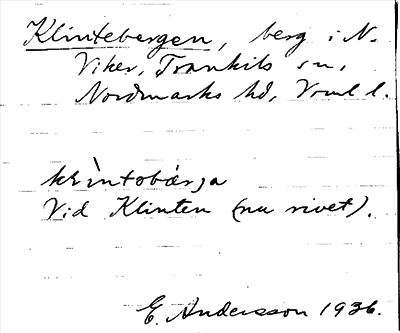 Klintebergen, berg i N.
Viker, Trankils sn,
Nordmarks hd, Vrml l.
klìntobær̀ja
Vid Klinten (nu rivet).
E. Andersson 1936.